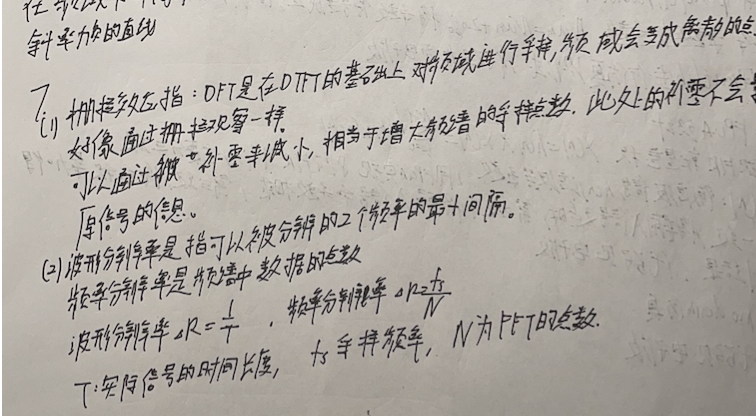 斜率为负的直线
7.
(1) 栅栏效应指：DFT是在DTFT的基础上对频域进行采样，频域会变成离散的点
好像通过栅栏观看一样。
可以通过补零来减小，相当于增大频谱的采样点数。此处上的补零不会
原信号的信息。
(2) 波形分辨率是指可以被分辨的2个频率的最小间隔。
频率分辨率是频谱中数据的点数
波形分辨率 △R=1/T ，频率分辨率 △R=fs/N
T：实际信号的时间长度， fs采样频率， N为FFT的点数.